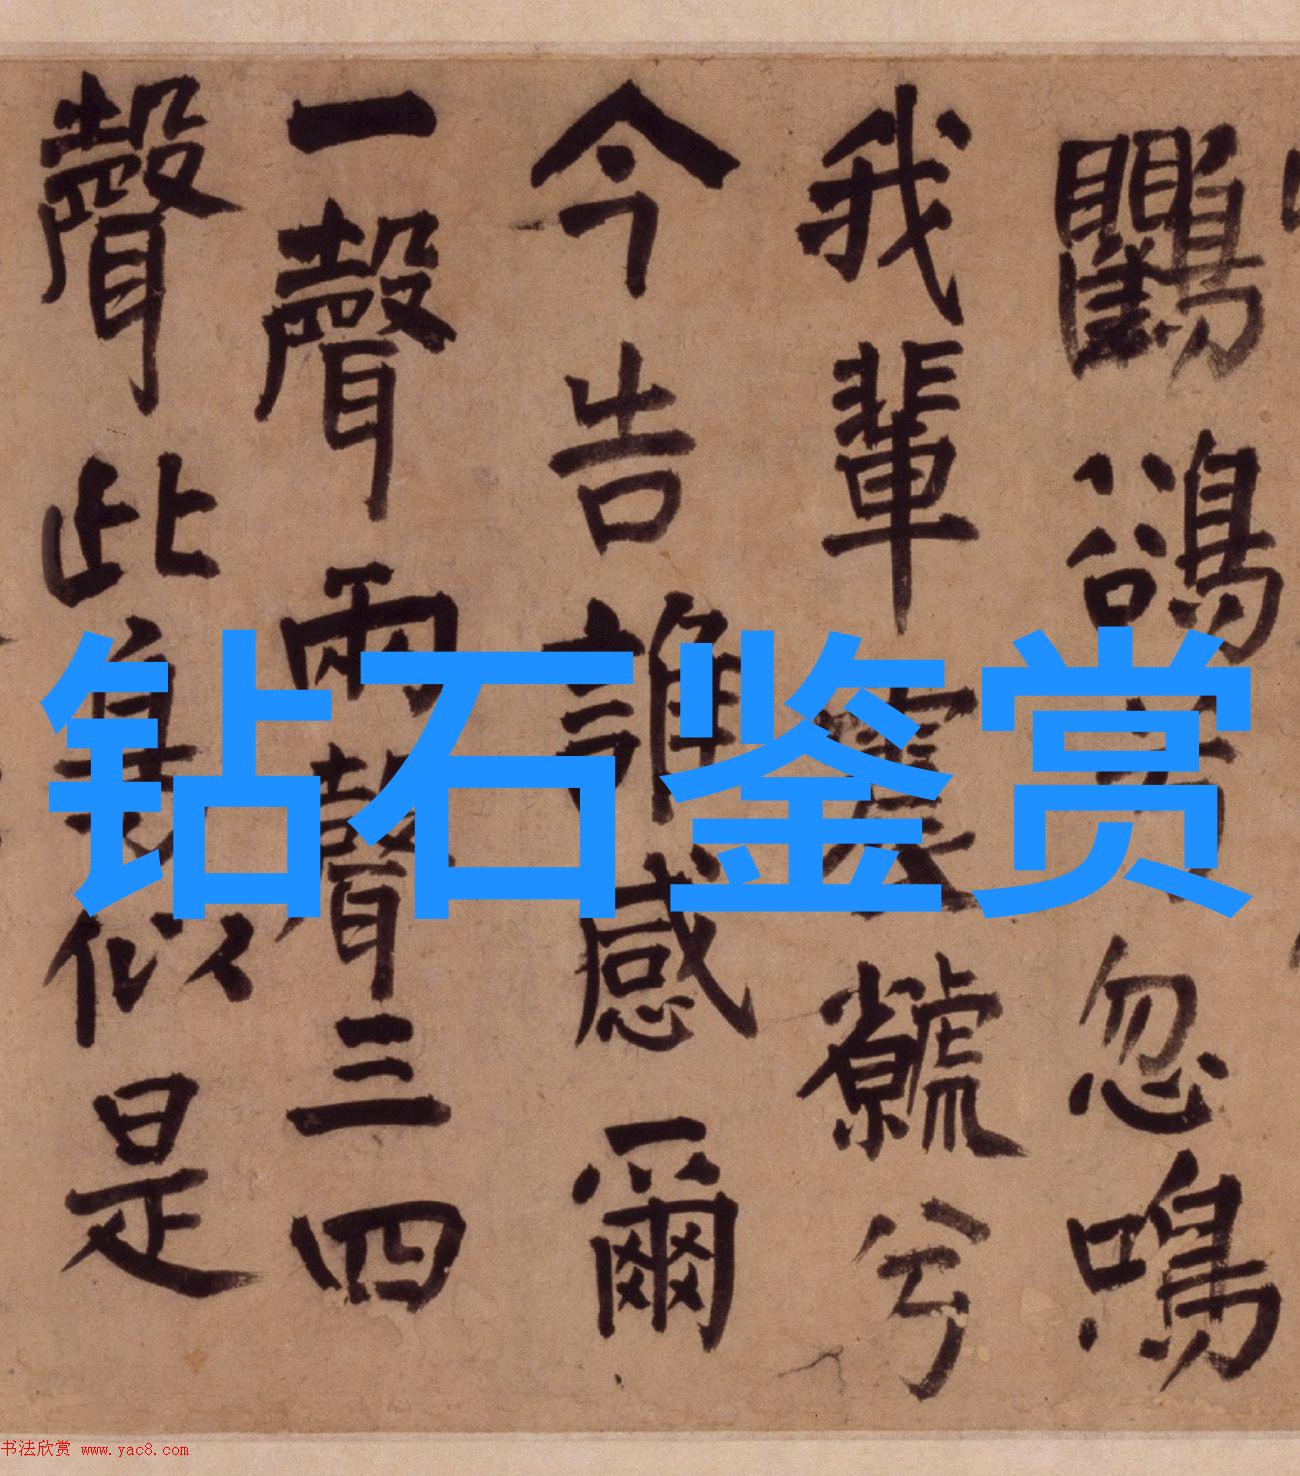 鸜鵒忽鳴
我輩虩兮
今告誰感爾
一聲兩聲三四
聲此身似是
钻石鉴赏
书法欣赏 www.yac8.com